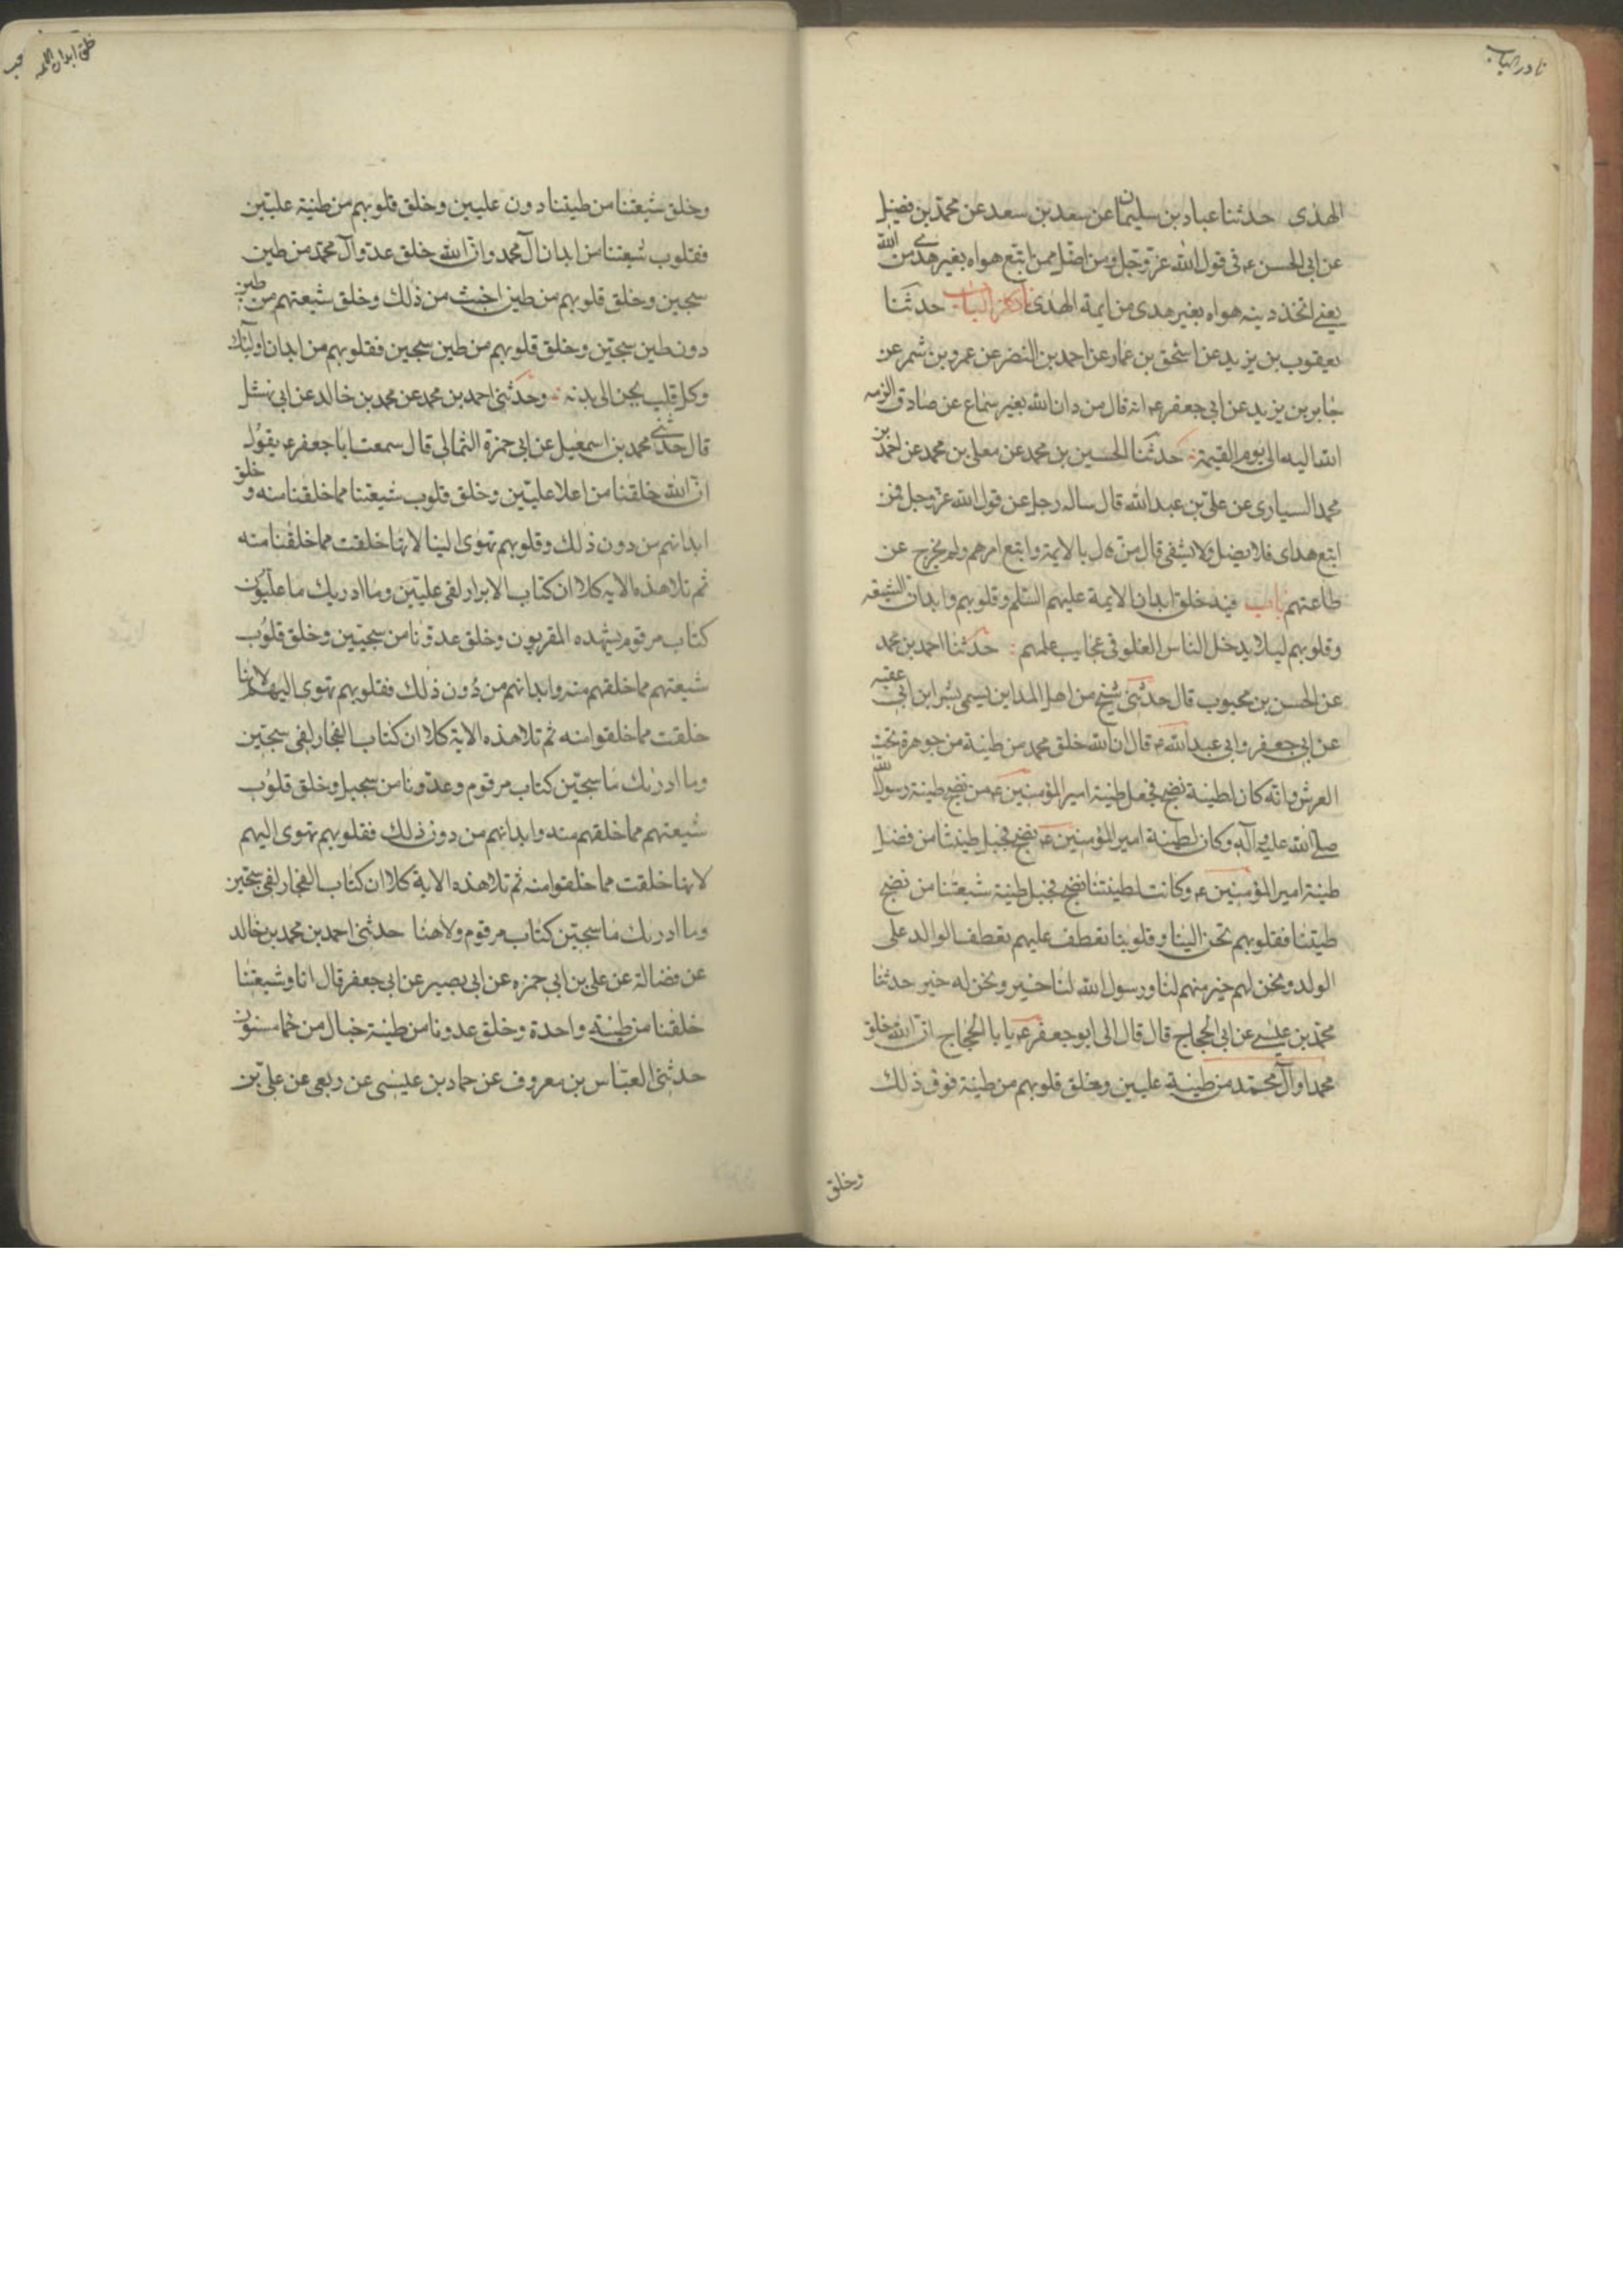 نادر الباب
الهدى حدثنا عباد بن سليمان عن سعد بن سعد عن محمد بن فضيل
عن ابي الحسن ع في قول الله عز وجل ومن اضل ممن اتبع هواه بغير هدى من الله
يعني اتخذ دينه هواه بغير هدى من ايمة الهدى نادر الباب حدثنا
يعقوب بن يزيد عن اسحق بن عمار عن احمد بن النضر عن عمرو بن شمر عن
جابر بن يزيد عن ابي جعفر ع انه قال من دان الله بغير سماع عن صادق الزمه
الله اليه الى يوم القيمة حدثنا الحسين بن محمد عن معلى بن محمد عن احمد بن
محمد السياري عن علي بن عبد الله قال ساله رجل عن قول الله عز وجل فمن
اتبع هداى فلا يضل ولا يشقى قال من قال بالايمة واتبع امرهم ولم يخرج عن
طاعتهم باب فيه خلق ابدان الايمة عليهم السلم وقلوبهم وابدان الشيعة
وقلوبهم ليلا يدخل الناس الغلو في عجايب علمهم حدثنا احمد بن محمد
عن الحسن بن محبوب قال حدثني شيخ من اهل المداين يسمى بشر ابن ابي عقبه
عن ابي جعفر وابي عبد الله ع قال ان الله خلق محمد من طينة من جوهرة تحت
العرش وانه كان لطينة نضح فجعل طينة امير المؤمنين ع من نضح طينة رسول الله
صلى الله عليه وآله وكان لطينة امير المؤمنين ع نضح فجبل طينتنا من فضل
طينة امير المؤمنين ع وكانت لطينتنا نضح فجبل طينة شيعتنا من نضح
طيتنا فقلوبهم تحن الينا وقلوبنا تعطف عليهم تعطف الوالد على
الولد ونحن لهم خير منهم لنا ورسول الله لنا خير ونحن له خير حدثنا
محمد بن عيسى عن ابي الحجاج قال قال الى ابو جعفر ع يا با الحجاج ان الله خلق
محمدا وآل محمد من طينة عليين وخلق قلوبهم من طينة فوق ذلك
وخلق
خلق ابدان الايمه
وخلق شيعتنا من طيتنا دون عليين وخلق قلوبهم من طينة عليين
فقلوب شيعتنا من ابدان آل محمد وان الله خلق عدو آل محمد من طين
سجين وخلق قلوبهم من طين اخبث من ذلك وخلق شيعتهم من طين
دون طين سجين وخلق قلوبهم من طين سجين فقلوبهم من ابدان اولئك
وكل قلب يحن الى بدنه وحدثني احمد بن محمد عن محمد بن خالد عن ابي نهشل
قال حدثني محمد بن اسمعيل عن ابي حمزة الثمالي قال سمعت ابا جعفر ع يقول
ان الله خلقنا من اعلا عليين وخلق قلوب شيعتنا مما خلقنا منه وخلق
ابدانهم من دون ذلك وقلوبهم تهوى الينا لانها خلقت مما خلقنا منه
ثم تلا هذه الايه كلا ان كتاب الابرار لفي عليين وما ادريك ما عليون
كتاب مرقوم يشهده المقربون وخلق عدونا من سجين وخلق قلوب
شيعتهم مما خلقهم منه وابدانهم من دون ذلك فقلوبهم تهوى اليهم لانها
خلقت مما خلقوا منه ثم تلا هذه الاية كلا ان كتاب الفجار لفي سجين
وما ادريك ما سجين كتاب مرقوم وعدونا من سجيل وخلق قلوب
شيعتهم مما خلقهم منه وابدانهم من دون ذلك فقلوبهم تهوى اليهم
لانها خلقت مما خلقوا منه ثم تلا هذه الاية كلا ان كتاب الفجار لفي سجين
وما ادريك ما سجين كتاب مرقوم ولاهنا حدثني احمد بن محمد بن خالد
عن فضالة عن علي بن ابي حمزه عن ابي بصير عن ابي جعفر قال انا وشيعتنا
خلقنا من طينة واحدة وخلق عدونا من طينة خبال من حما مسنون
حدثني العباس بن معروف عن حماد بن عيسى عن ربعي عن علي بن